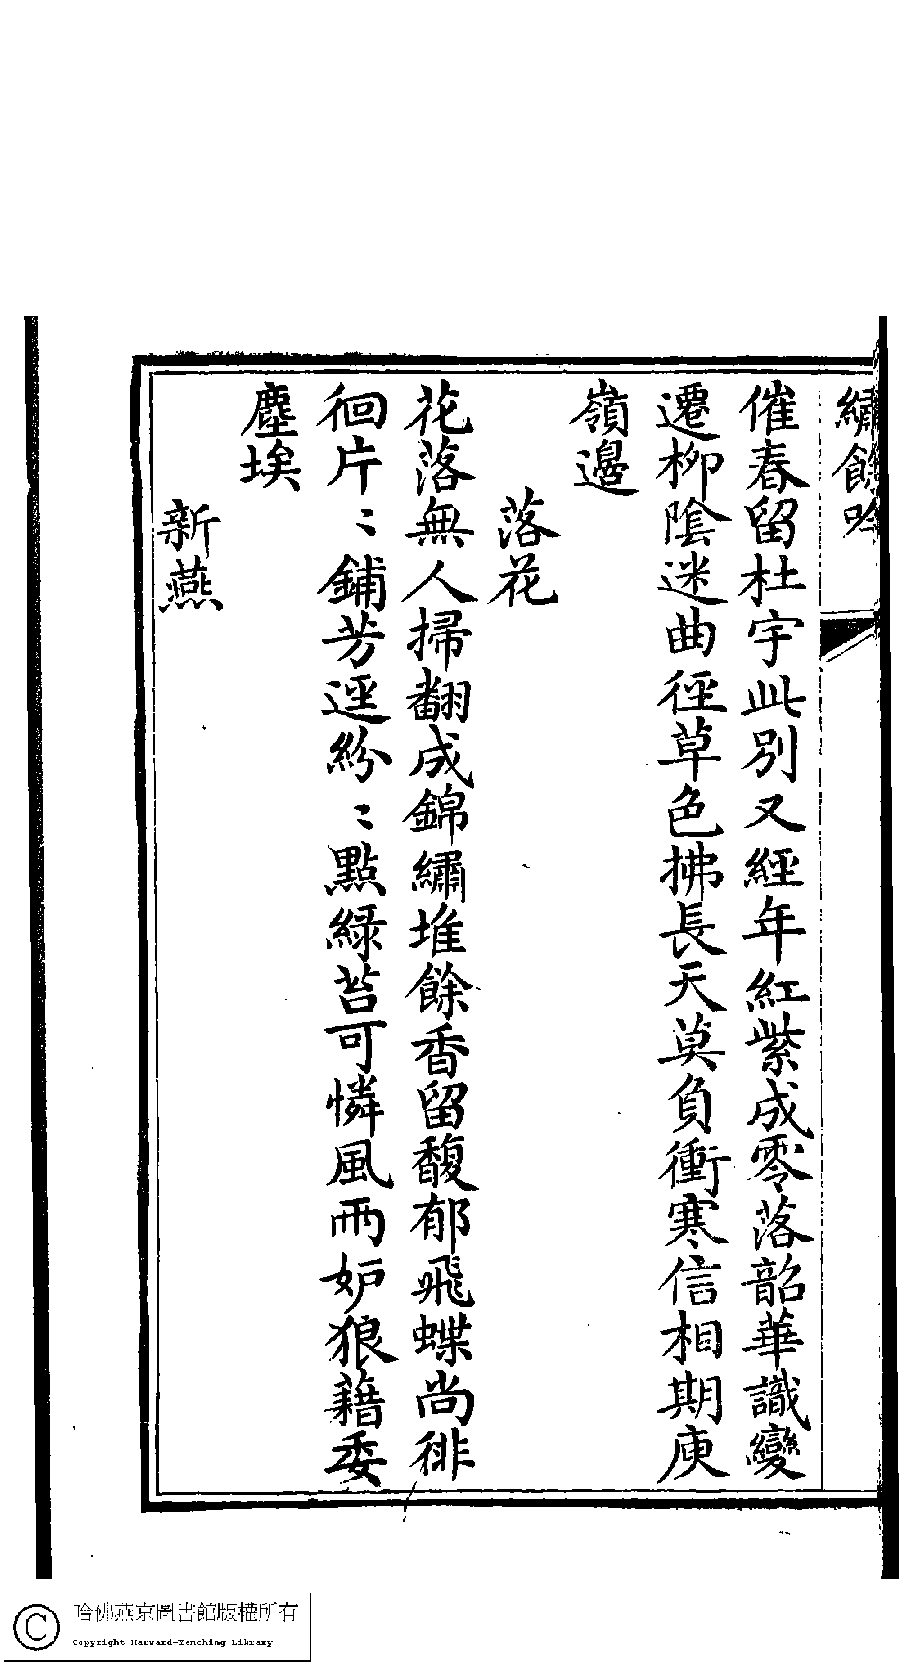 繡餘吟
催春留杜宇此別又經年紅紫成零落韶華識變
遷柳陰迷曲徑草色拂長天莫負衝寒信相期庾
嶺邊
落花
花落無人掃翻成錦繡堆餘香留馥郁飛蝶尚徘
徊片〻鋪芳逕紛〻點綠苔可憐風雨妒狼藉委
塵埃
新燕
哈佛燕京圖書館版權所有
Copyright Harvard-Yenching Library